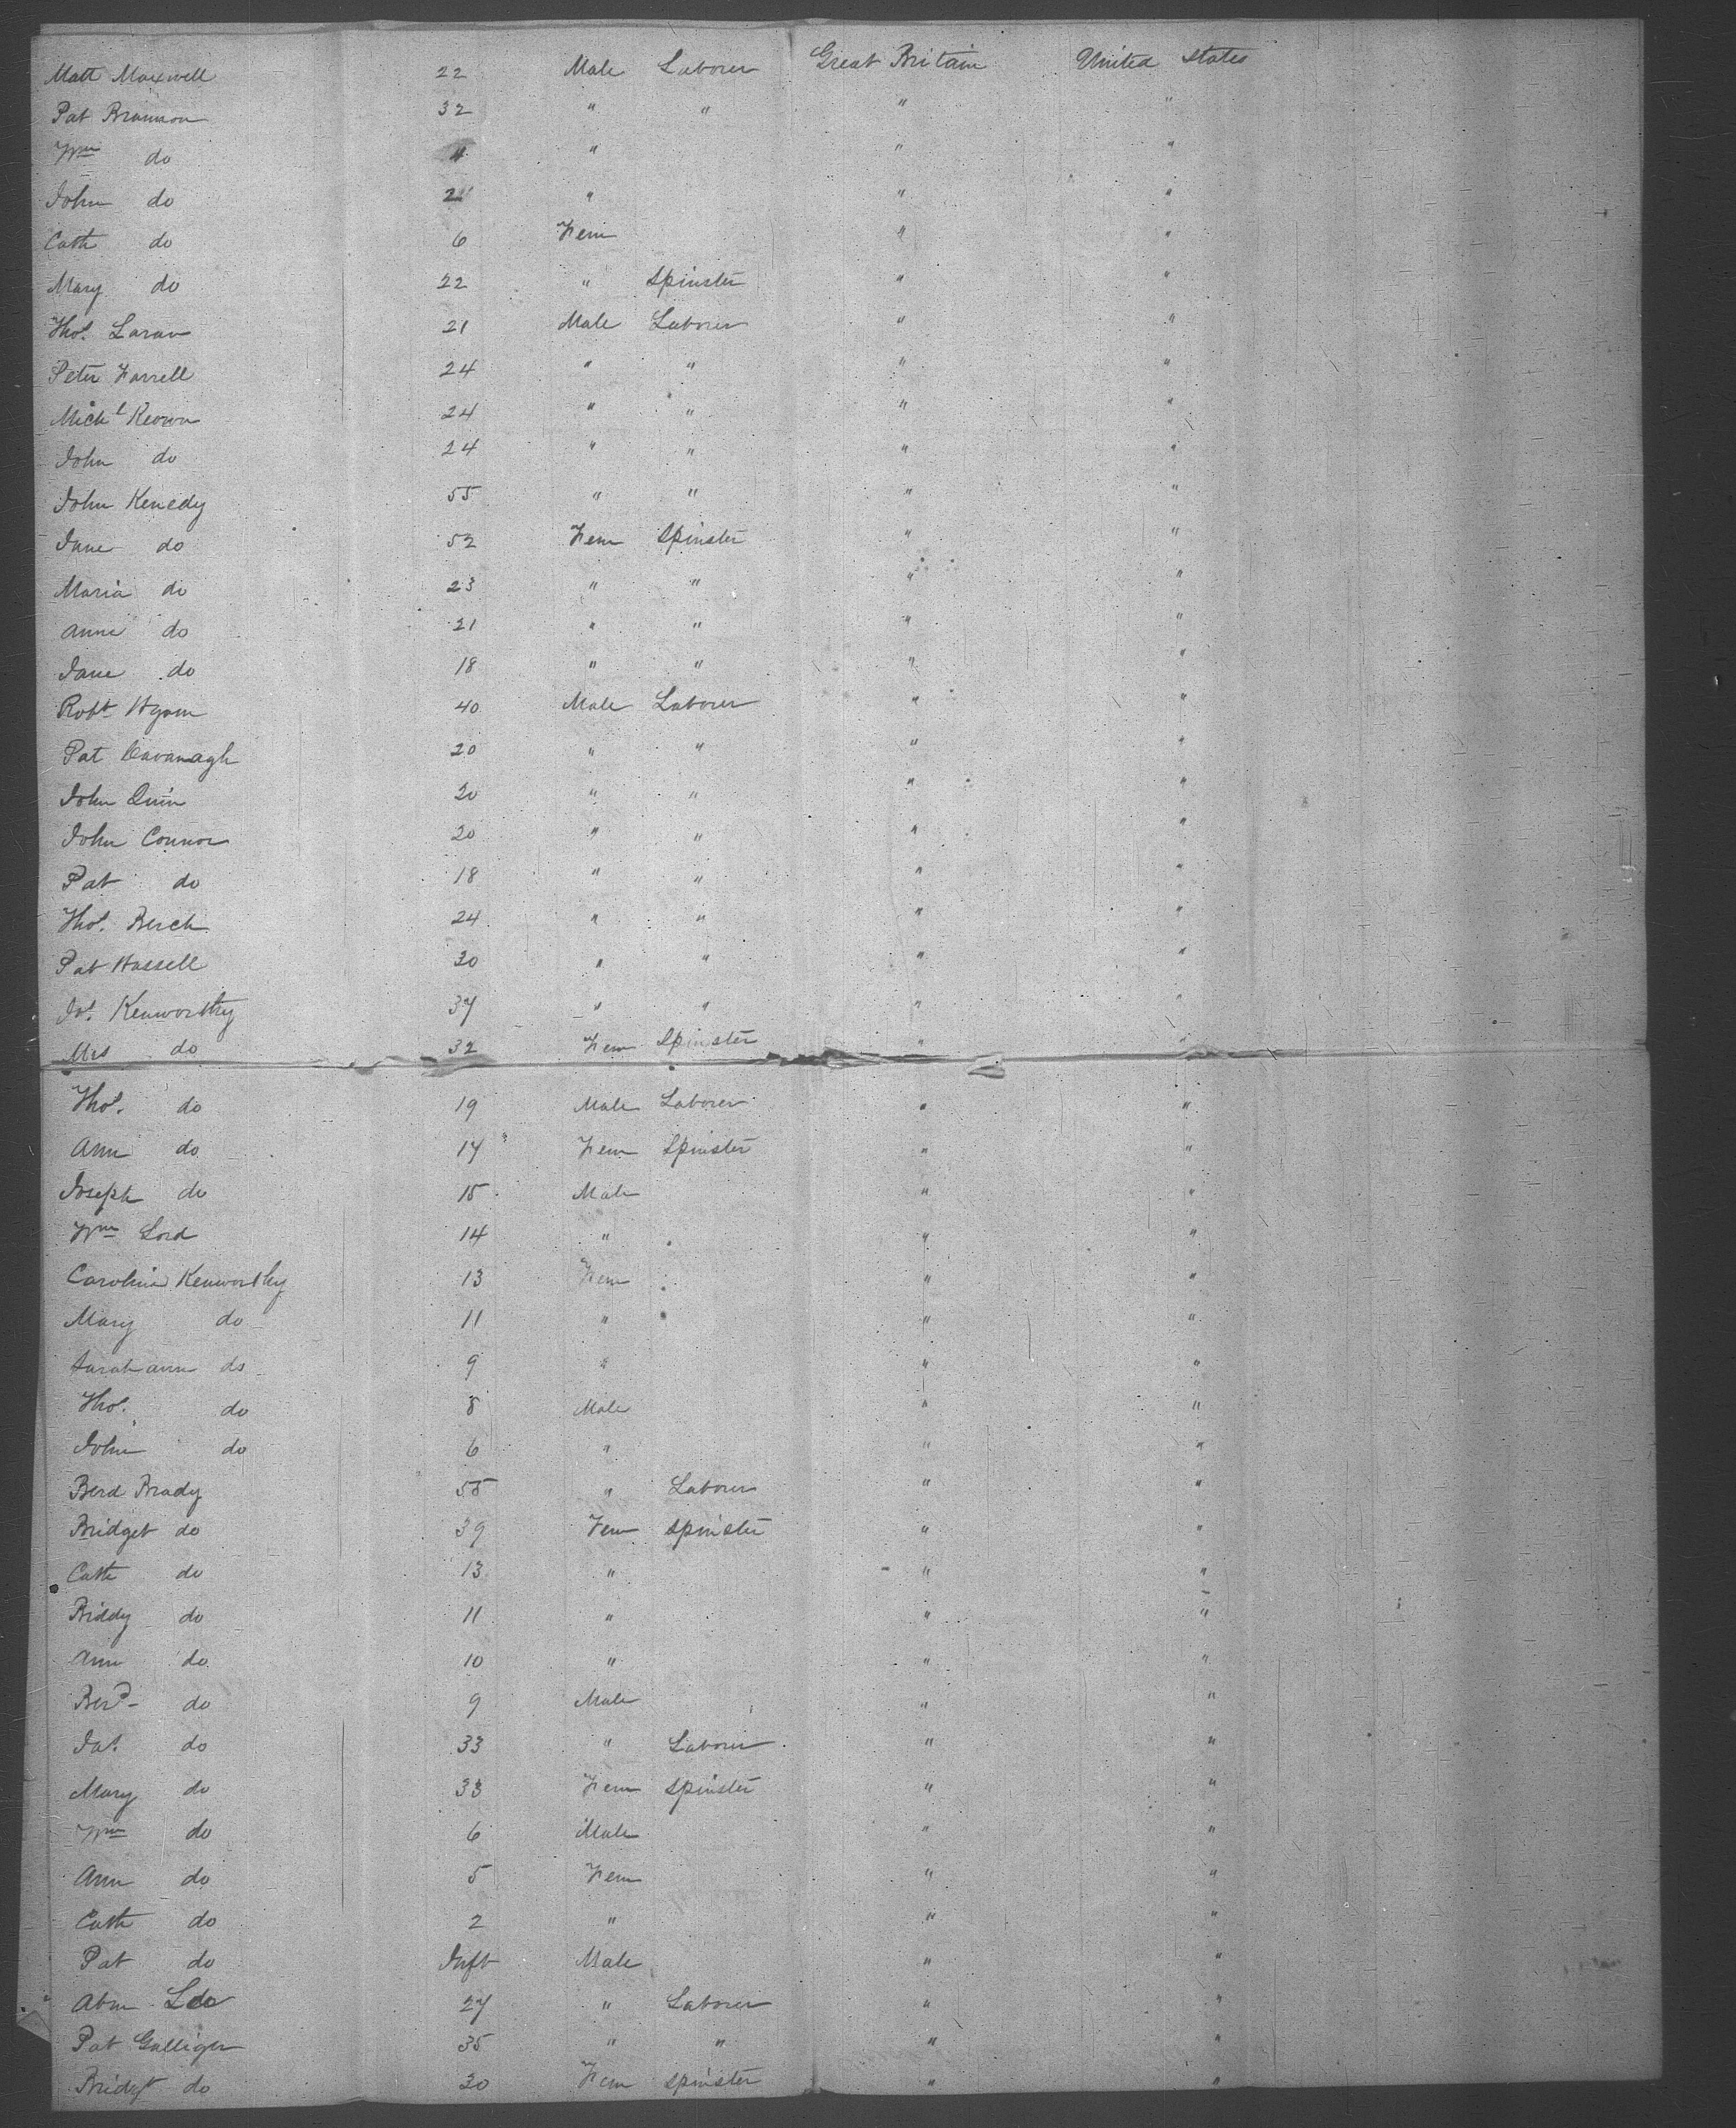 Matt Maxwell 22 Male Laborer Great Britain United States
Pat Brannon 32 " " " "
Wm do 4 " " "
John do 2 " " "
Cath do 6 Fem " "
Mary do 22 " Spinster " "
Thos. Laran 21 Male Laborer " "
Peter Farrell 24 " " " "
Michl Keown 24 " " " "
John do 24 " " " "
John Kenedy 55 " " " "
Jane do 52 Fem Spinster " "
Maria do 23 " " " "
Anne do 21 " " " "
Jane do 18 " " " "
Robt Hyam 40 Male Laborer " "
Pat Cavanagh 20 " " " "
John Quin 20 " " " "
John Connor 20 " " " "
Pat do 18 " " " "
Thos. Berch 24 " " " "
Pat Hassell 30 " " " "
Jos. Kenworthy 37 " " " "
Mrs do 32 Fem Spinster " "
Thos. do 19 Male Laborer " "
Ann do 17 Fem Spinster " "
Joseph do 15 Male " "
Wm Lord 14 " " "
Caroline Kenworthy 13 Fem " "
Mary do 11 " " "
Sarah ann do 9 " " "
Thos. do 8 Male " "
John do 6 " " "
Berd Brady 55 " Laborer " "
Bridget do 39 Fem Spinster " "
Cath do 13 " " "
Biddy do 11 " " "
Ann do 10 " " "
Berd do 9 Male " "
Jas. do 33 " Laborer " "
Mary do 33 Fem Spinster " "
Wm do 6 Male " "
Ann do 5 Fem " "
Cath do 2 " " "
Pat do Inft Male " "
Abm 27 " Laborer " "
Pat Galliger 35 " " " "
Bridgt do 30 Fem Spinster " "